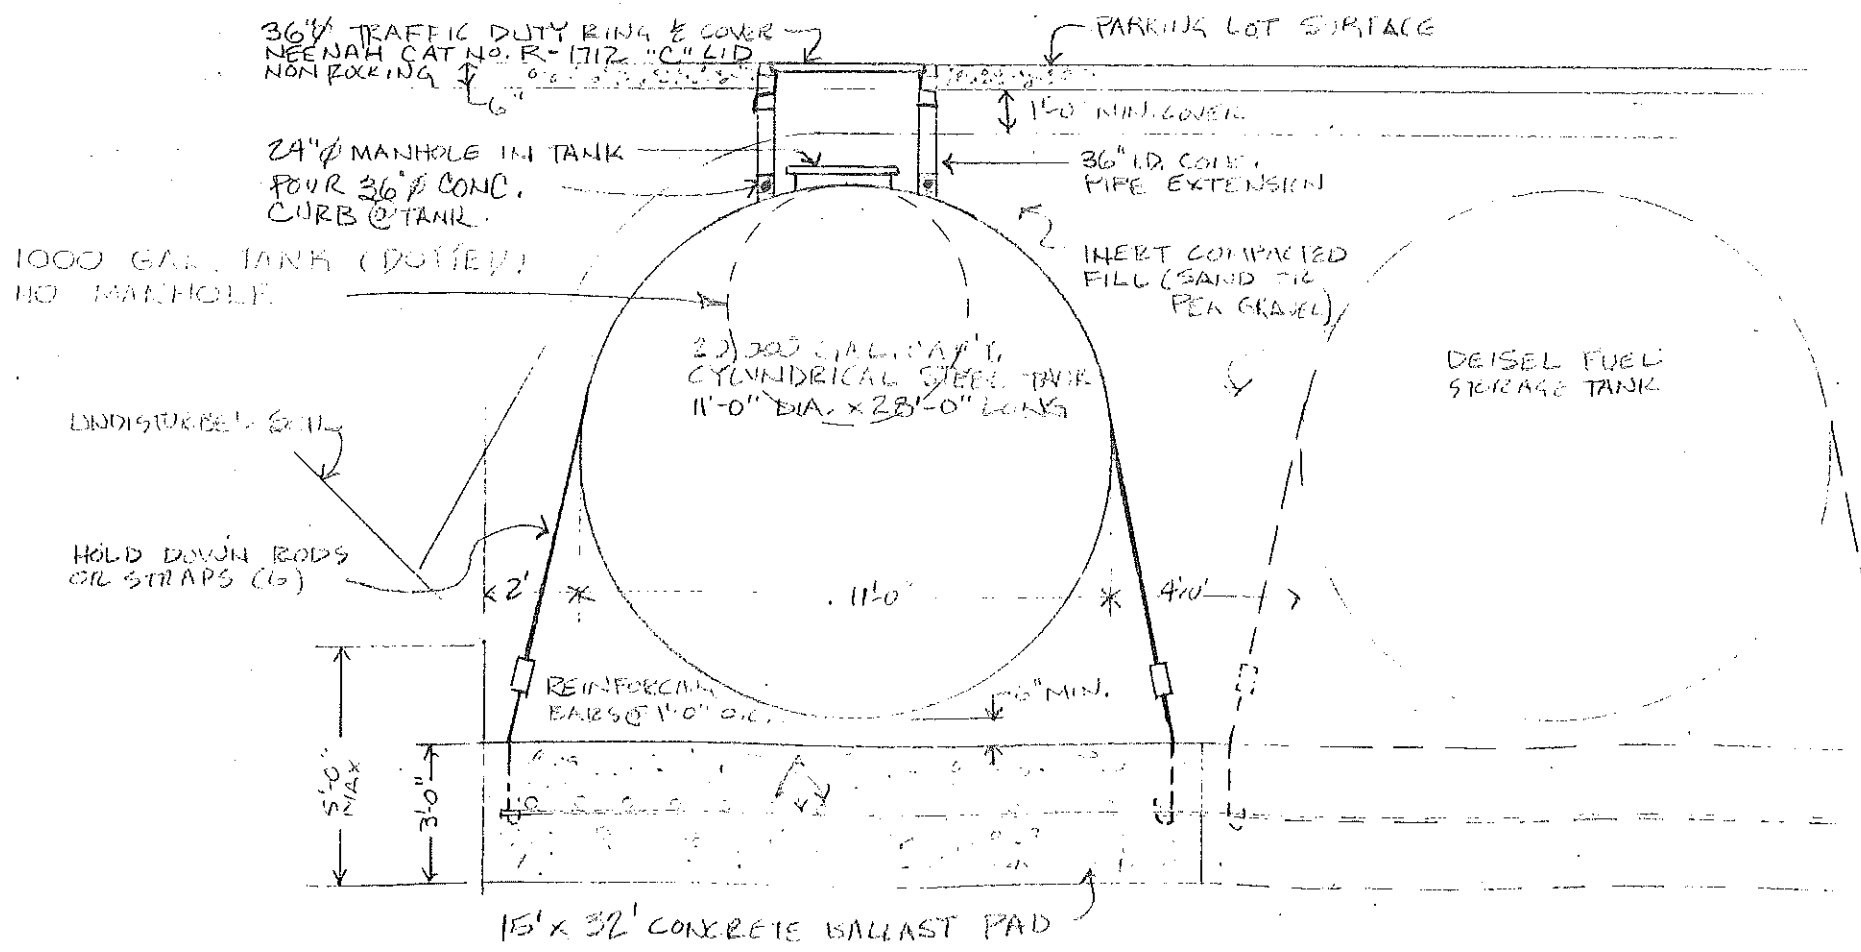 36"Ø TRAFFIC DUTY RING & COVER
NEENAH CAT NO. R-1712 "C" LID
NON ROCKING
6"
PARKING LOT SURFACE
1'-0" MIN. COVER
24"Ø MANHOLE IN TANK
POUR 36"Ø CONC.
CURB @ TANK.
36" I.D. CONC.
PIPE EXTENSION
1000 GAL. TANK (DOTTED)
NO MANHOLE
INERT COMPACTED
FILL (SAND OR
PEA GRAVEL)
GAL. CAP'Y.
CYLINDRICAL STEEL TANK
11'-0" DIA. x 28'-0" LONG
DEISEL FUEL
STORAGE TANK
UNDISTURBED SOIL
HOLD DOWN RODS
OR STRAPS (6)
2'
11'-0"
4'-0"
REINFORCING
BARS @ 1'-0" O.C.
6" MIN.
5'-0"
MAX
3'-0"
15' x 32' CONCRETE BALLAST PAD